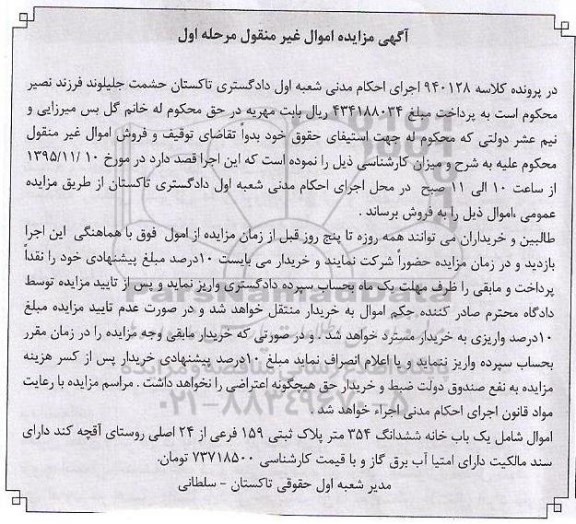 آگهی مزایده اموال غیر منقول مرحله اول
در پرونده کلاسه ۹۴۰۱۲۸ اجرای احکام مدنی شعبه اول دادگستری تاکستان حشمت جلیلوند فرزند نصیر
محکوم است به پرداخت مبلغ ۴۳۴۱۸۸۰۳۴ ریال بابت مهریه در حق محکوم له خانم گل بس میرزایی و
نیم عشر دولتی که محکوم له جهت استیفای حقوق خود بدوا تقاضای توقیف و فروش اموال غیر منقول
محکوم علیه به شرح و میزان کارشناسی ذیل را نموده است که این اجرا قصد دارد در مورخ ۱۰ /۱۳۹۵/۱۱
از ساعت ۱۰ الی ۱۱ صبح در محل اجرای احکام مدنی شعبه اول دادگستری تاکستان از طریق مزایده
عمومی ،اموال ذیل را به فروش برساند .
طالبین و خریداران می توانند همه روزه تا پنج روز قبل از زمان مزایده از امول فوق با هماهنگی این اجرا
بازدید و در زمان مزایده حضوراً شرکت نمایند و خریدار می بایست ۱۰درصد مبلغ پیشنهادی خود را نقداً
پرداخت و مابقی را ظرف مهلت یک ماه بحساب سپرده دادگستری واریز نماید و پس از تایید مزایده توسط
دادگاه محترم صادر کننده حکم اموال به خریدار منتقل خواهد شد و در صورت عدم تایید مزایده مبلغ
۱۰درصد واریزی به خریدار مسترد خواهد شد . و در صورتی که خریدار مابقی وجه مزایده را در زمان مقرر
بحساب سپرده واریز ننماید و یا اعلام انصراف نماید مبلغ ۱۰درصد پیشنهادی خریدار پس از کسر هزینه
مزایده به نفع صندوق دولت ضبط و خریدار حق هیچگونه اعتراضی را نخواهد داشت . مراسم مزایده با رعایت
مواد قانون اجرای احکام مدنی اجراء خواهد شد .
اموال شامل یک باب خانه ششدانگ ۳۵۴ متر پلاک ثبتی ۱۵۹ فرعی از ۲۴ اصلی روستای آقچه کند دارای
سند مالکیت دارای امتیا آب برق گاز و با قیمت کارشناسی ۷۳۷۱۸۵۰۰ تومان.
مدیر شعبه اول حقوقی تاکستان - سلطانی
ParsNamadData
۰۲۱-۸۸۳۴۹۶۷۰-۵